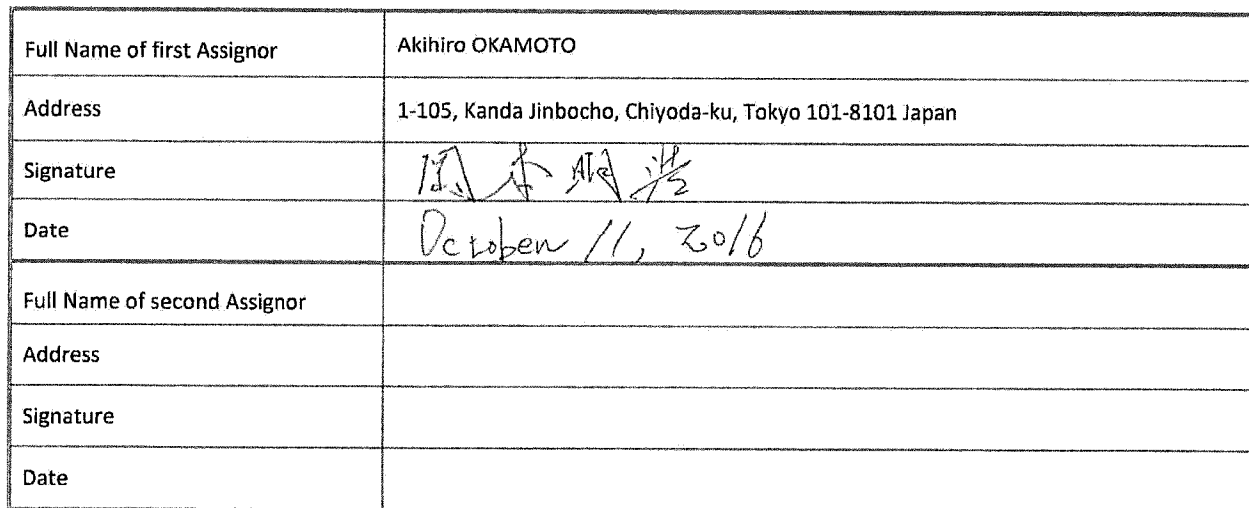 Full Name of first Assignor Akihiro OKAMOTO
Address 1-105, Kanda Jinbocho, Chiyoda-ku, Tokyo 101-8101 Japan
Signature 岡本明
Date October 11, 2016
Full Name of second Assignor
Address
Signature
Date